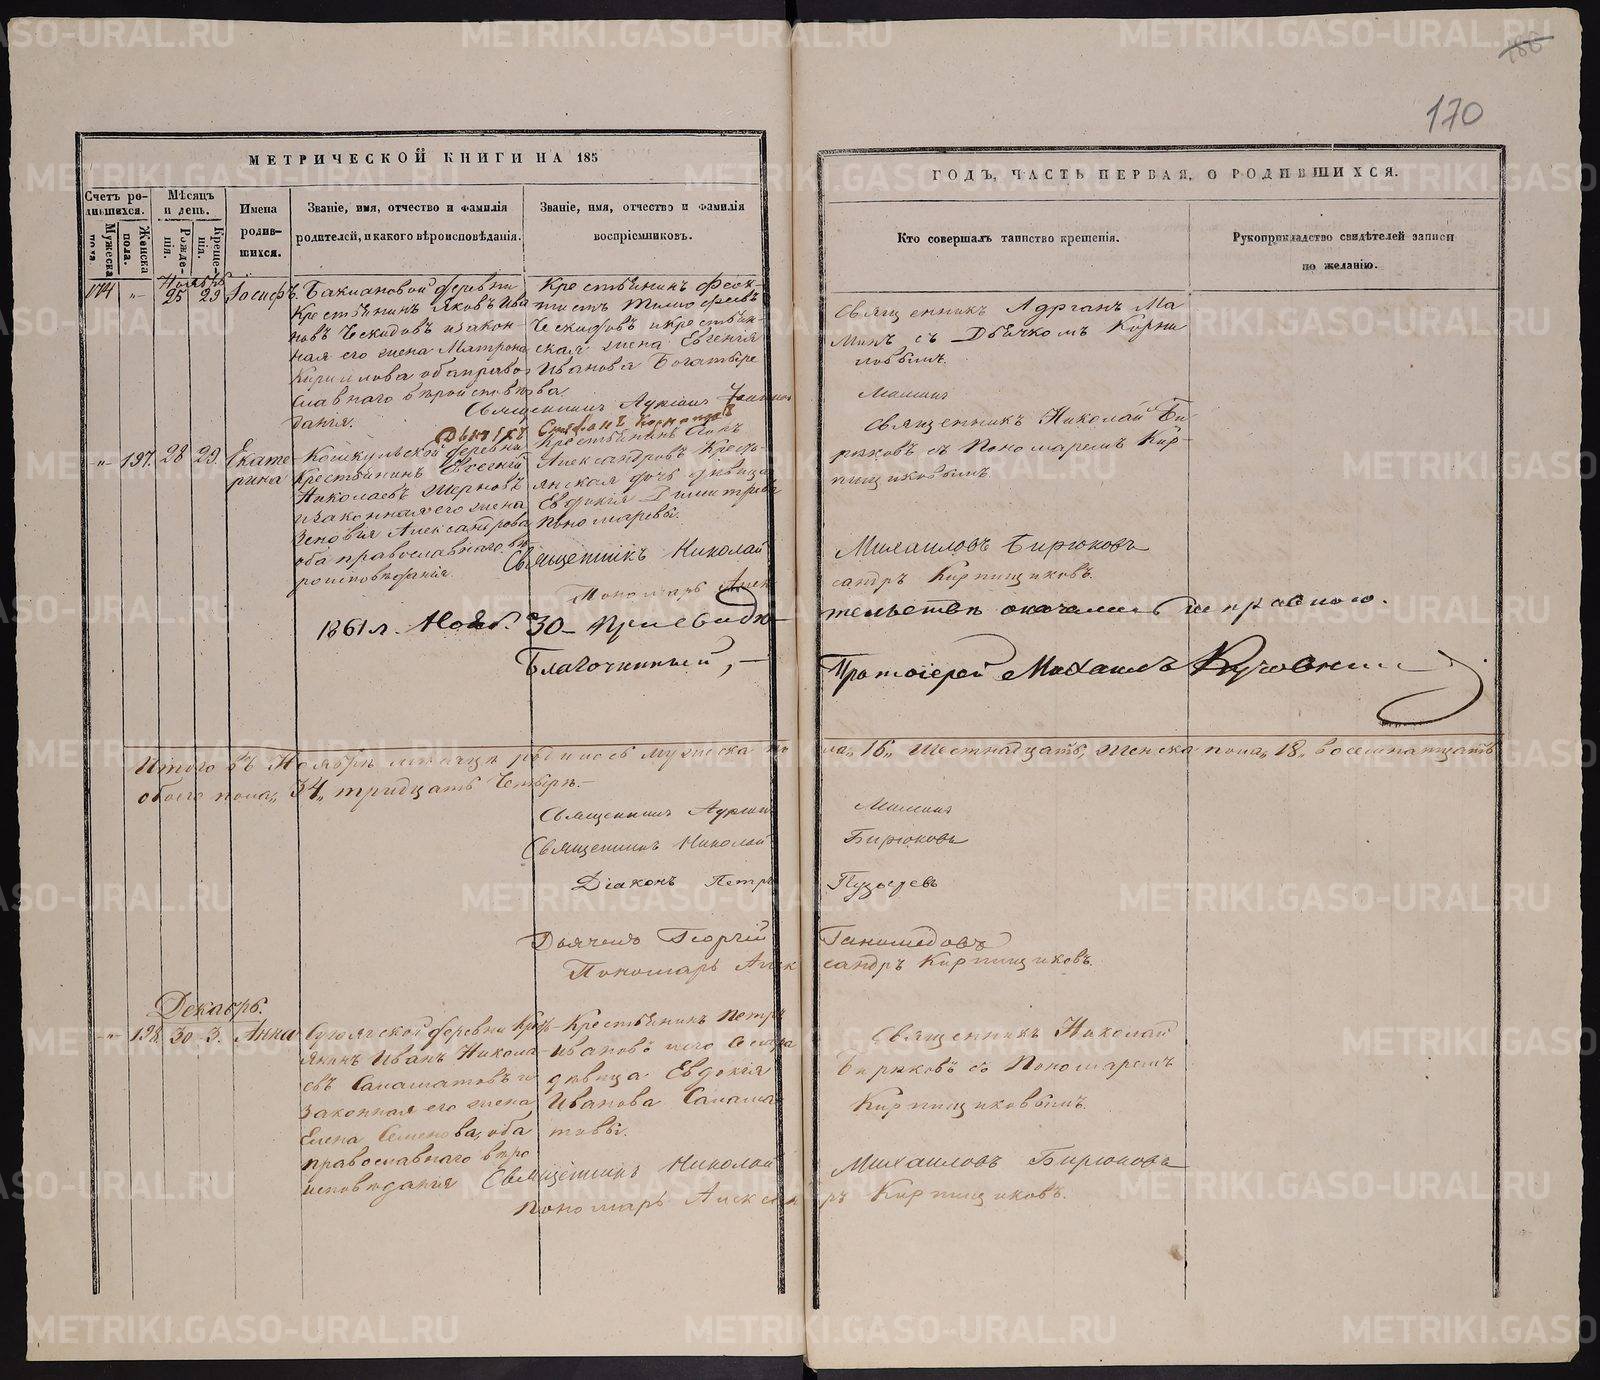 170
МЕТРИЧЕСКОЙ КНИГИ НА 185
ГОДЪ, ЧАСТЬ ПЕРВАЯ, О РОДИВШИХСЯ.
Счетъ родившихся.
Мужеска пола.
Женска пола.
Мѣсяцъ и день.
Рожденія.
Крещенія.
Имена родившихся.
Званіе, имя, отчество и фамилія
родителей, и какого вѣроисповѣданія.
Званіе, имя, отчество и фамилія
воспріемниковъ.
Кто совершалъ таинство крещенія.
Рукоприкладство свидѣтелей записи
по желанію.
Ноябрь
174 „ 25 29 Іосифъ.
деревни
Крестьянинъ Яковъ Ива
новъ Ческидовъ и закон-
ная его жена Матрона
Кирилова оба право
славнаго вѣроисповѣ
данія.
Крестьянинъ Феок-
тистъ Тимофеевъ
Ческидовъ и крестьян-
ская жена Евгенія
Иванова Богатыре
ва.
Священникъ Адріанъ Ма
минъ съ Дьячкомъ Корни
ловымъ.
Священникъ Адріанъ
Маминъ
Дьячекъ Стефанъ
„ 197. 28 29. Екате
рина
деревни
Крестьянинъ
Николаевъ
и законная его жена
Зеновія Александрова
оба православнаго вѣ
роисповѣданія.
Крестьянинъ
Александровъ Кресть-
янская дочь девица
Евдокія Димитріева
Пономаревы.
Священникъ Николай Би
рюковъ съ Пономаремъ Кир-
пищиковымъ.
Священникъ Николай Михаиловъ Бирюковъ
Пономарь Александръ Кирпищиковъ.
1861 г. Нояб. 30 – По свидѣтельствѣ оказались исправною.
Благочинный, – Протоіерей Михаилъ
Итого въ Ноябрѣ мѣсяцѣ родилось мужеска пола „16„ шестнадцать, женска пола „18„ восемнатцать
обоего пола „34„ тридцать четыре. –
Священникъ Адріанъ Маминъ
Священникъ Николай Бирюковъ
Діаконъ Петръ Пузыревъ
Дьячекъ Георгій Ганимедовъ
Пономарь Александръ Кирпищиковъ.
Декабрь.
„ 198. 30 3. Анна
деревни Кресть
янинъ Иванъ Никола
евъ Саламатовъ и
законная его жена
Елена Семенова, оба
православнаго вѣро
исповѣданія
Крестьянинъ Петръ
Ивановъ и его сестра
девица Евдокія
Иванова Салама
товы.
Священникъ Николай
Бирюковъ съ Пономаремъ
Кирпищиковымъ.
Священникъ Николай Михаиловъ Бирюковъ
Пономарь Александръ Кирпищиковъ.
METRIKI.GASO-URAL.RU